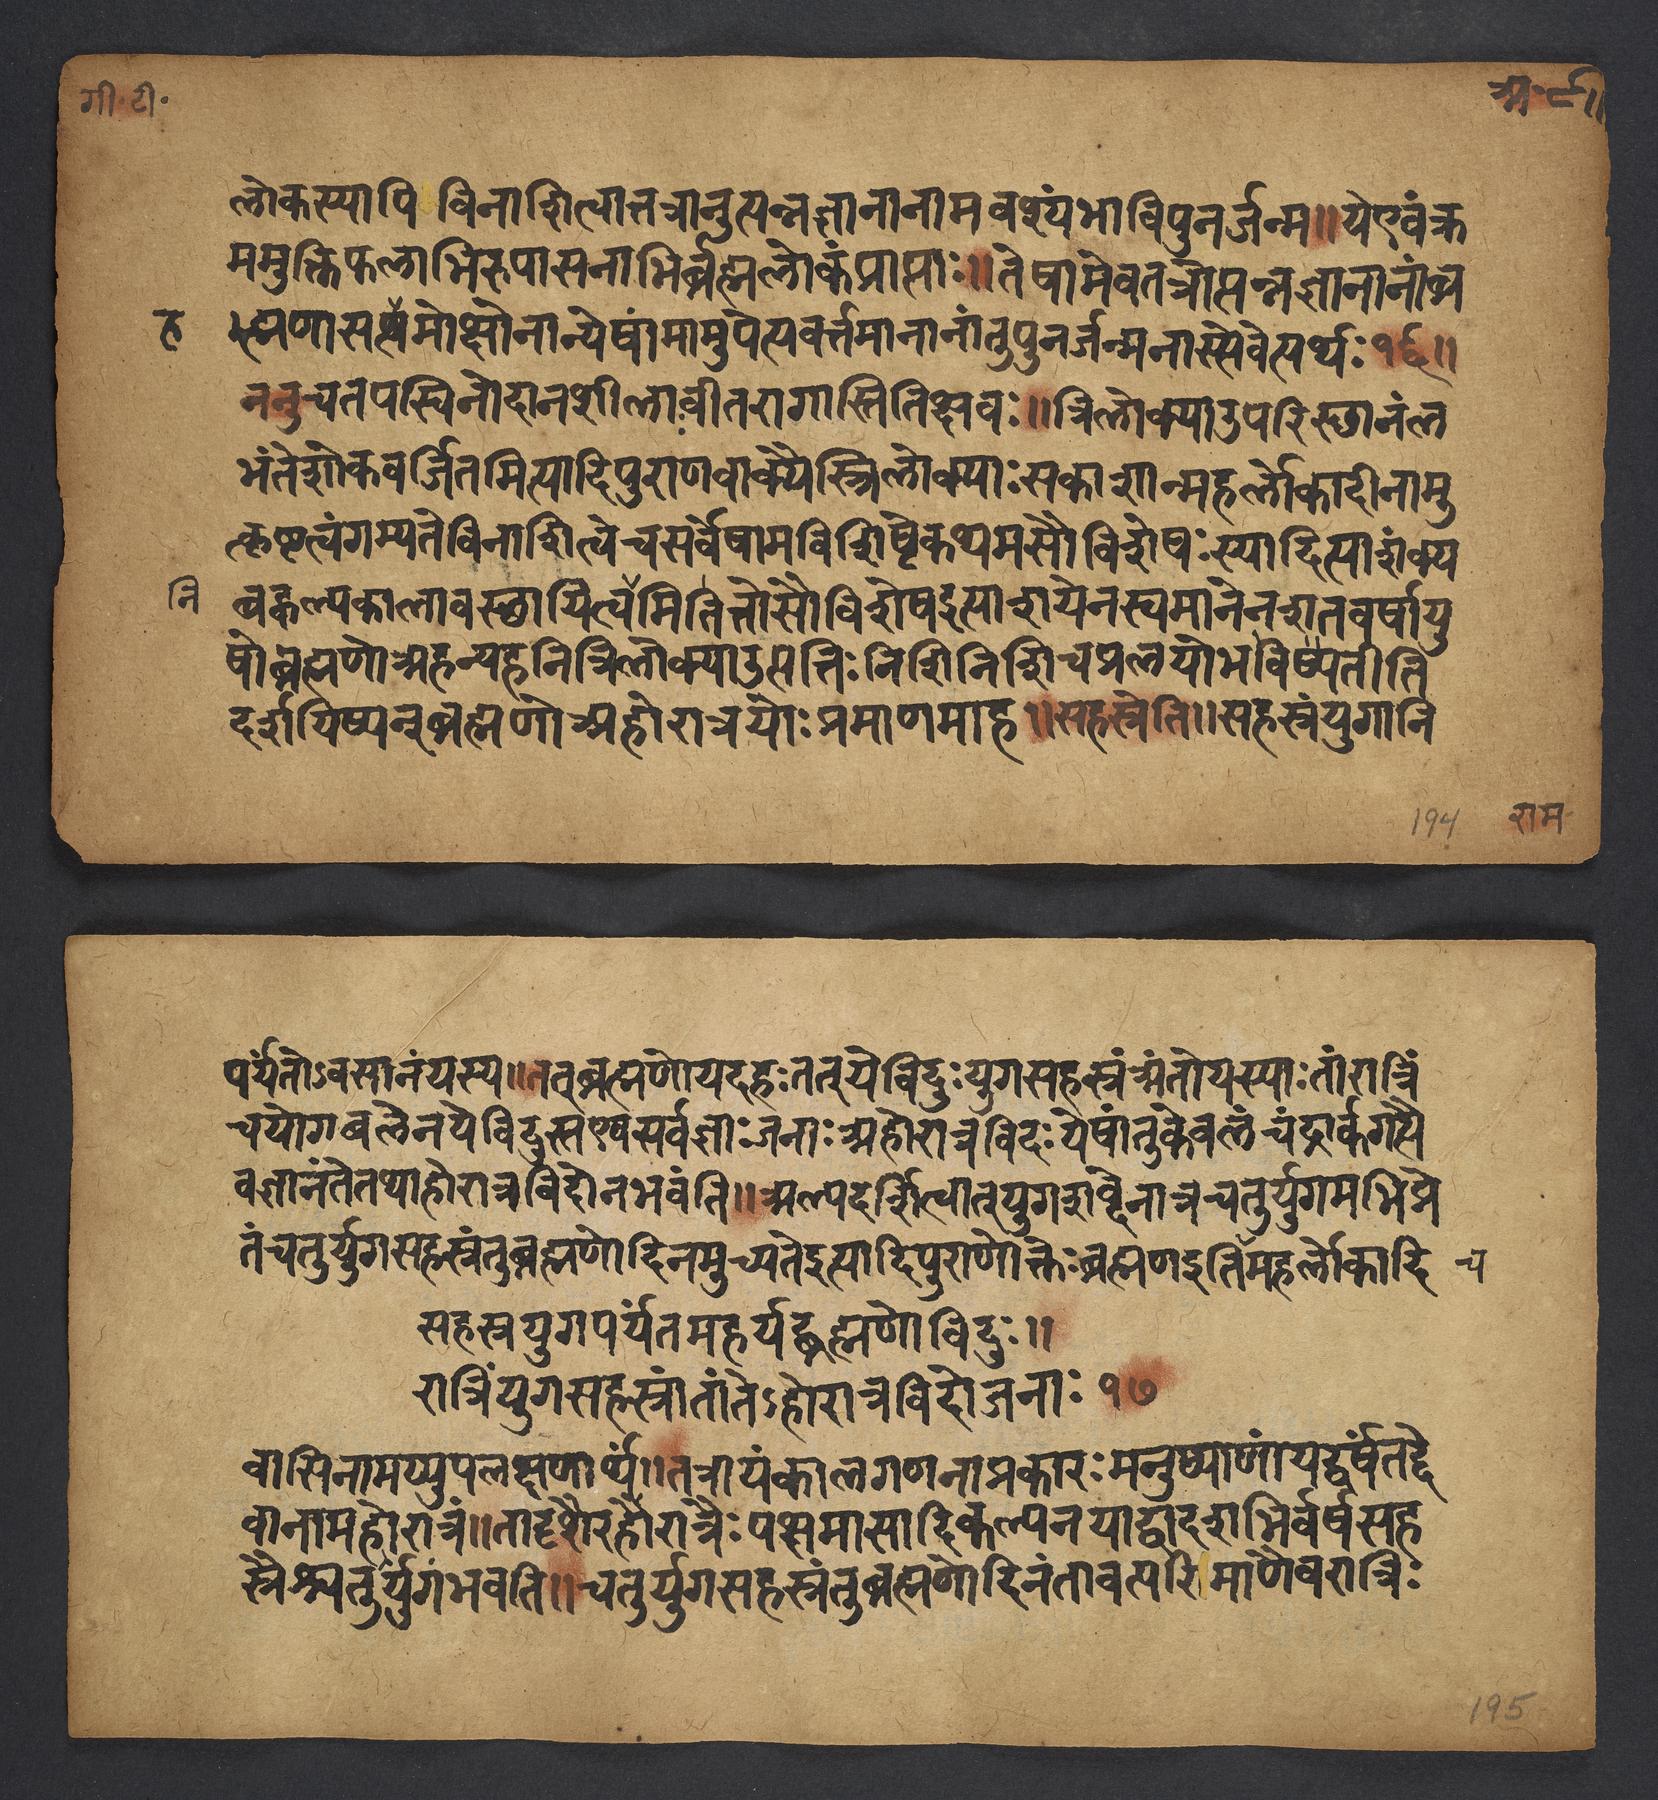 गी॰ टी॰
अ॰ ८॥
लोकस्यापि विनाशित्वात्तत्रानुत्पन्नज्ञानानामवश्यंभाविपुनर्जन्म॥येएवंक्र
ममुक्तिफलाभिरुपासनाभिर्ब्रह्मलोकंप्राप्ताः॥तेषामेवतत्रोत्पन्नज्ञानानांब्र
ह ह्मणासहमोक्षोनान्येषांमामुपेत्यवर्त्तमानानांतुपुनर्जन्मनास्त्येवेत्यर्थः१६॥
ननुचतपस्विनोदानशीलावीतरागास्तितिक्षवः॥त्रिलोक्याउपरिस्थानंल
भंतेशोकवर्जितमित्यादिपुराणवाक्यैस्त्रिलोक्याःसकाशान्महर्लोकादीनामु
त्कृष्टत्वंगम्यतेविनाशित्वेचसर्वेषामविशिष्टेकथमसौविशेषःस्यादित्याशंक्य
नि बहुकल्पकालावस्थायित्वमितितोसौविशेषइत्याशयेनस्वमानेनशतवर्षायु
षोब्रह्मणोअहन्यहनित्रिलोक्याउत्पत्तिःनिशिनिशिचप्रलयोभविष्यतीति
दर्शयिष्यन्ब्रह्मणोअहोरात्रयोःप्रमाणमाह॥सहस्रेति॥सहस्रंयुगानि
194
राम
पर्यंतोऽवसानंयस्य॥तत्ब्रह्मणोयदहःतत्येविदुःयुगसहस्रंअंतोयस्याःतांरात्रिं
चयोगबलेनयेविदुस्तएवसर्वज्ञाःजनाःअहोरात्रविदःयेषांतुकेवलंचंद्रार्कगत्यै
वज्ञानंतेतथाहोरात्रविदोनभवंति॥अल्पदर्शित्वात्युगशब्देनात्रचतुर्युगमभिप्रे
तंचतुर्युगसहस्रंतुब्रह्मणोदिनमुच्यतेइत्यादिपुराणोक्तेःब्रह्मणइतिमहर्लोकादि च
सहस्रयुगपर्यंतमहर्यद्ब्रह्मणोविदुः॥
रात्रिंयुगसहस्रांतांतेऽहोरात्रविदोजनाः १७
वासिनामप्युपलक्षणार्थं॥तत्रायंकालगणनाप्रकारःमनुष्याणांयद्वर्षंतद्दे
वानामहोरात्रं॥तादृशैरहोरात्रैःपक्षमासादिकल्पनयाद्वादशभिर्वर्षसह
स्रैश्चतुर्युगंभवति॥चतुर्युगसहस्रंतुब्रह्मणोदिनंतावत्परिमाणेवरात्रिः
195